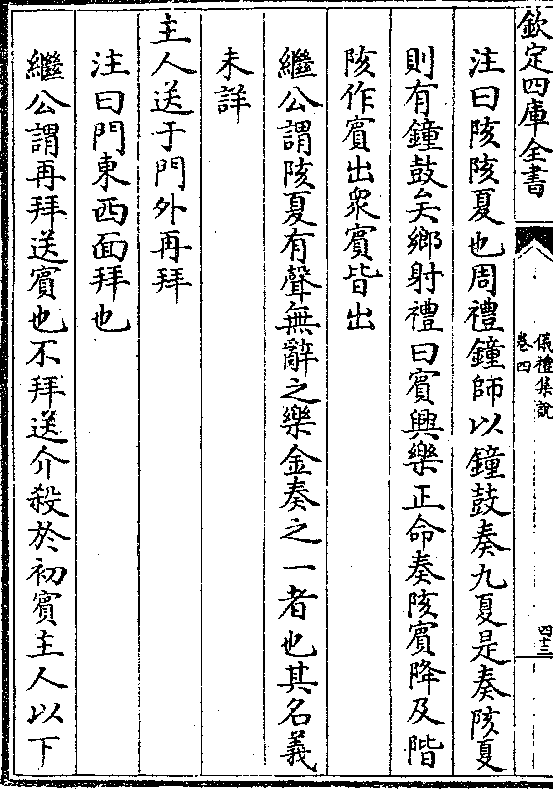 欽定四庫全書
儀禮集說
卷四
四十三
注曰陔陔夏也周禮鐘師以鐘鼓奏九夏是奏陔夏
則有鐘鼓矣鄉射禮曰賓興樂正命奏陔賓降及階
陔作賓出衆賓皆出
繼公謂陔夏有聲無辭之樂金奏之一者也其名義
未詳
主人送于門外再拜
注曰門東西面拜也
繼公謂再拜送賓也不拜送介殺於初賓主人以下